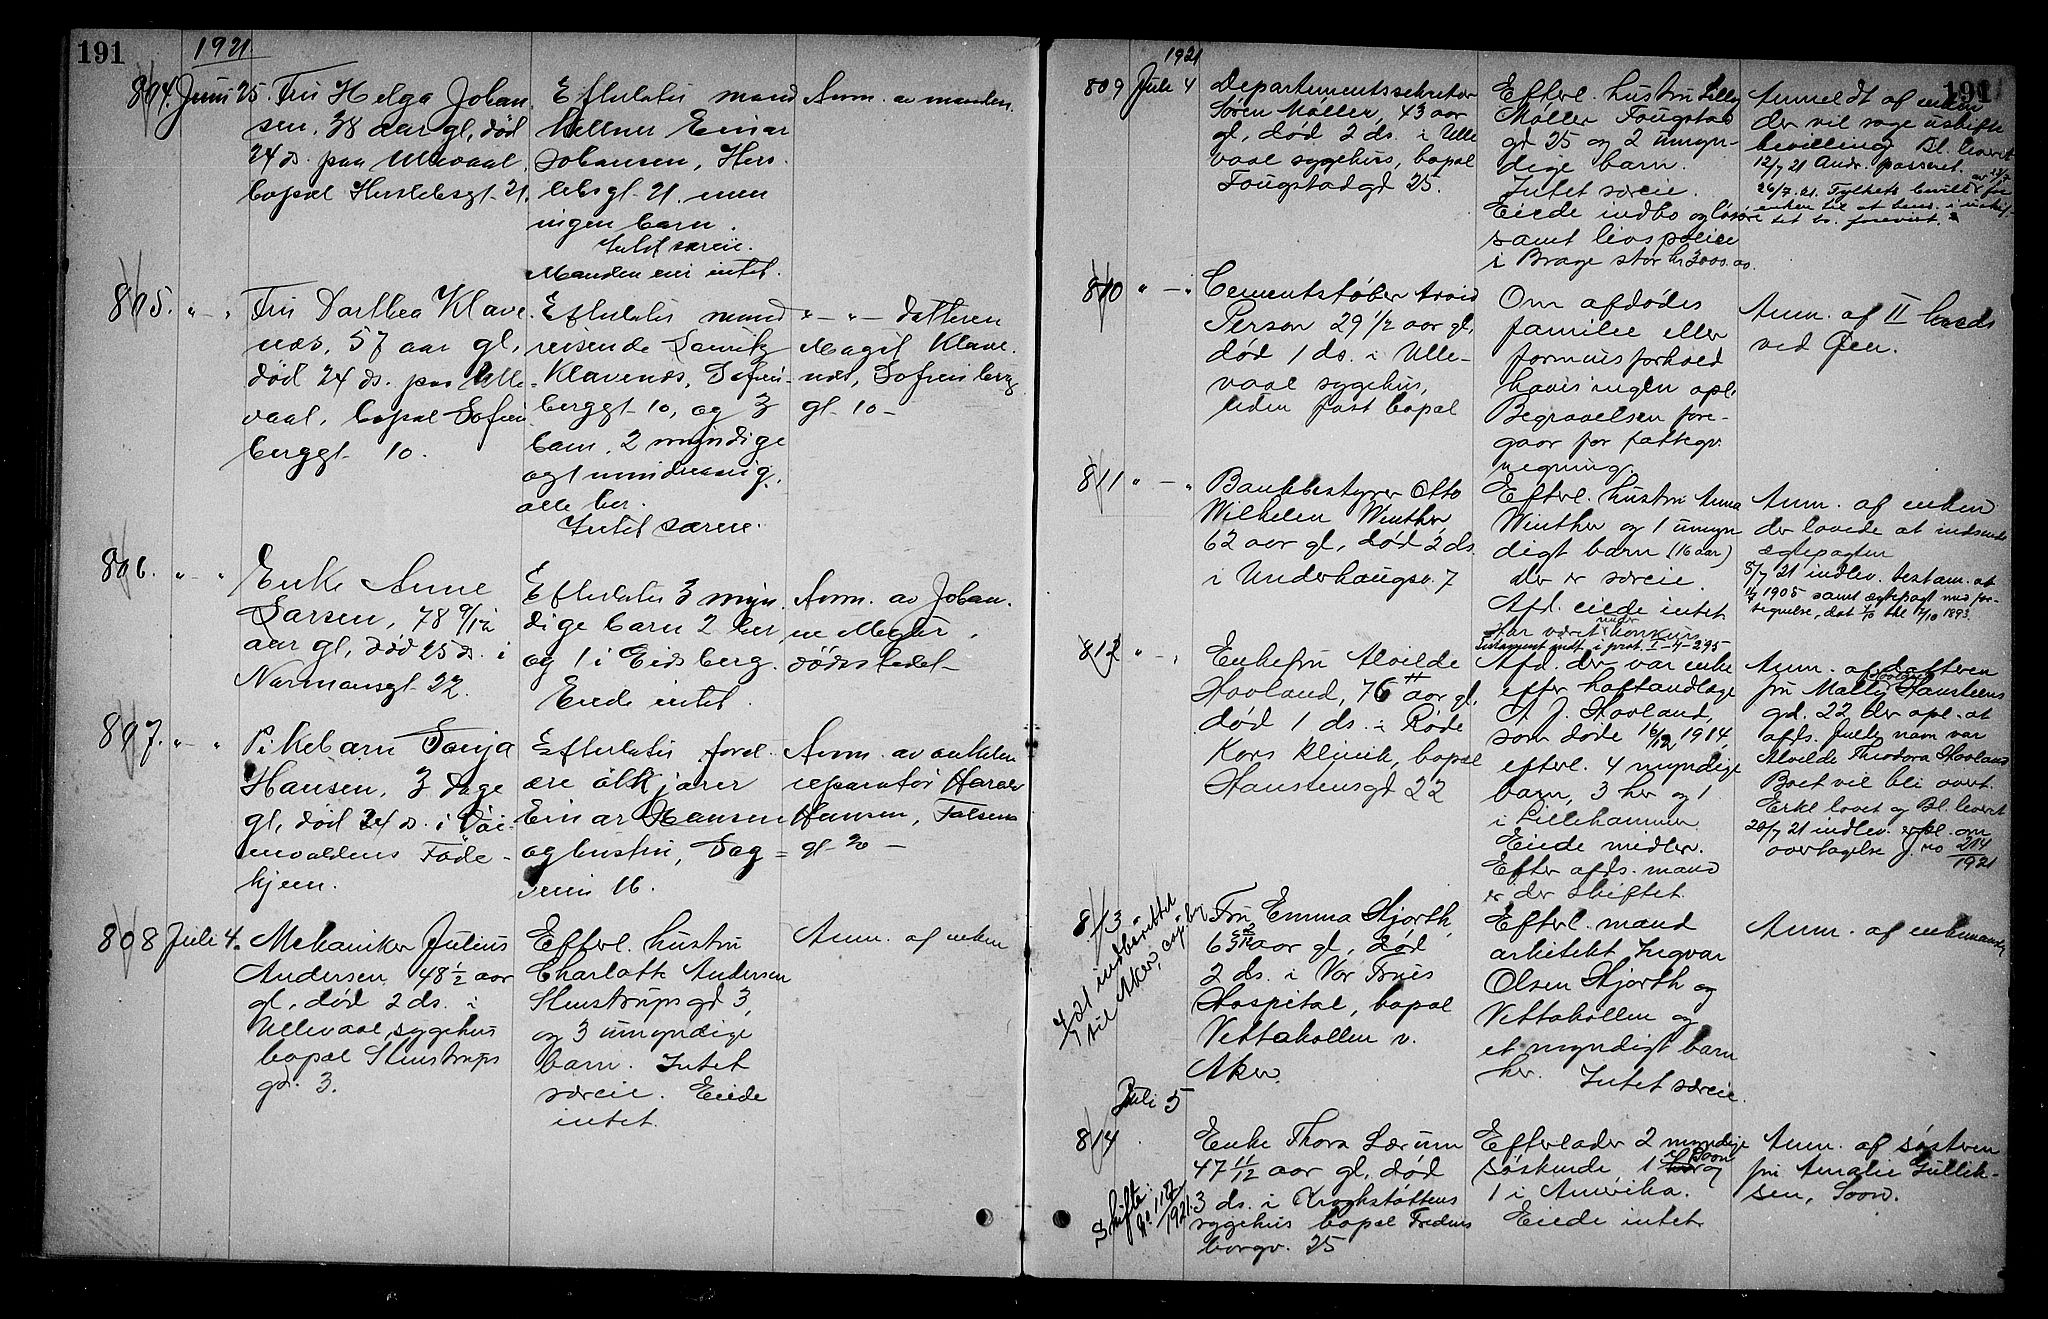 191
1921
804. Juni 25. Fru Helga Johan-
sen, 38 aar gl, død
24 ds. paa Ullevaal,
bopæl Herslebsgt. 21.
Efterlater mand
kellner Einar
Johansen, Hers-
lebsgt. 21. men
ingen barn.
Intet særeie.
Manden eier intet.
Anm. av manden.
805. " — " Fru Dorthea Klave-
næs, 57 aar gl,
død 24 ds. paa Ulle-
vaal, bopæl Sofien-
berggt. 10.
Efterlater mand
reisende Lauritz
Klavenæs, Sofien-
berggt. 10, og 3
barn, 2 myndige
og 1 mindreaarig,
alle her.
Intet særeie.
" — " — datteren
Magit Klave-
næs, Sofienberg
gt. 10 —
806. " — " Enke Anne
Larsen, 78 9/12
aar gl, død 25 ds. i
Normannsgt. 22.
Efterlater 3 myn-
dige barn 2 her
og 1 i Eidsberg.
Eiede intet.
Anm. av Johan-
ne Meyer,
dødsstedet —
807. " — " Pikebarn Sonja
Hansen, 3 dage
gl, død 24 ds. i
Føde-
hjem.
Efterlater foræl-
dre ølkjører
Einar Hansen
og hustru, Dag-
veien 16.
Anm. av onkelen
reparatør Harald
Hansen, Falsens
gt. 20 —
808 Juli 4. Mekaniker Julius
Andersen 48 1/2 aar
gl, død 2 ds. i
Ullevaal sygehus
bopæl Stenstrups
gd. 3.
Efterl. hustru
Charlotte Andersen
Stenstrupsgd 3,
og 3 umyndige
barn. Intet
særeie. Eiede
intet.
Anm. af enken
191
1921
809 Juli 4 Departementssekretær
Søren Møller, 43 aar
gl, død 2 ds. i Ulle
vaal sygehus, bopæl
Tougstadgd 25.
Efterl. hustru Lilly
Møller Tougstad
gd 25 og 2 umyn-
dige barn.
Intet særeie.
Eiede indbo og løsøre
samt livspolice
i Brage stor kr 3000.00
Anmeldt af enken
der vil søge uskifte
bevilling Bl. leveret
12/7 21 Andr. passeret.
26/7. 21. Fylkets bevill. for
enken til at hens. i uskif-
tet bo. forevist.
810 " — " Cementstøber Arvid
Person 29 1/2 aar gl,
død 1 ds. i Ulle-
vaal sygehus,
uden fast bopæl
Om afdødes
familie eller
formuesforhold
haves ingen opl.
Begravelsen fore-
gaar for fattigv.
regning.
Anm. af II kreds
ved Øen.
811 " — " Bankbestyrer Otto
Wilhelm Winther
62 aar gl, død 2 ds.
i Underhaugsv. 7
Efterl. hustru Anna
Winther og 1 umyn
digt barn (16 aar)
Der er særeie
Afd. eiede intet
Har været under konkurs
Testament indt. i prot. I-4-295
Anm. af enken
der lovede at indsende
egtepagten
8/7 21 indlev. testam. at
1905 samt ægtepagt med for-
tegnelse, dat 1/10 thl 7/10 1893.
812 " — " Enkefru Alvilde
Hovland, 76 aar gl.
død 1 ds. i Røde
Kors klinik, bopæl
Hansteensgd 22
Afd. der var enke
efter haftandlage
A. J. Hovland,
som døde 16/12 1914,
efterl. 4 myndige
barn, 3 her og 1
i Lillehammer.
Eiede midler.
Efter afds. mand
er der skiftet.
Anm. af datteren
frk Mally Hovland Hansteens
gd. 22 der opl. at
afds. fulde navn var
Alvilde Theodora Hovland
Boet vil bli overt.
Erkl lovet og Bl. leveret
20/7 21 indlev. erkl. om
overtagelse J. no 214
1921
813
Edt indberettet
til Aker,
Fru Emma Hjorth,
63 2/12 aar gl, død
2 ds. i Vor Frues
Hospital, bopæl
Vettakollen v.
Aker.
Efterl. mand
arkitekt Ingvar
Olsen Hjorth og
Vettakollen og
et myndigt barn
her. Intet særeie.
Anm. af enkemanden
Juli 5
814
Skifte
no. 117
1921.
Enke Thora Lærum
47 11/12 aar gl, død
3 ds. i Kroghstøttens
sygehus bopæl Fredens
borgv. 25
Efterlader 2 myndige
søskende 1 i Soon og
1 i Amerika.
Eiede intet
Anm. af søsteren
fru Amalie Gullik-
sen, Soon.